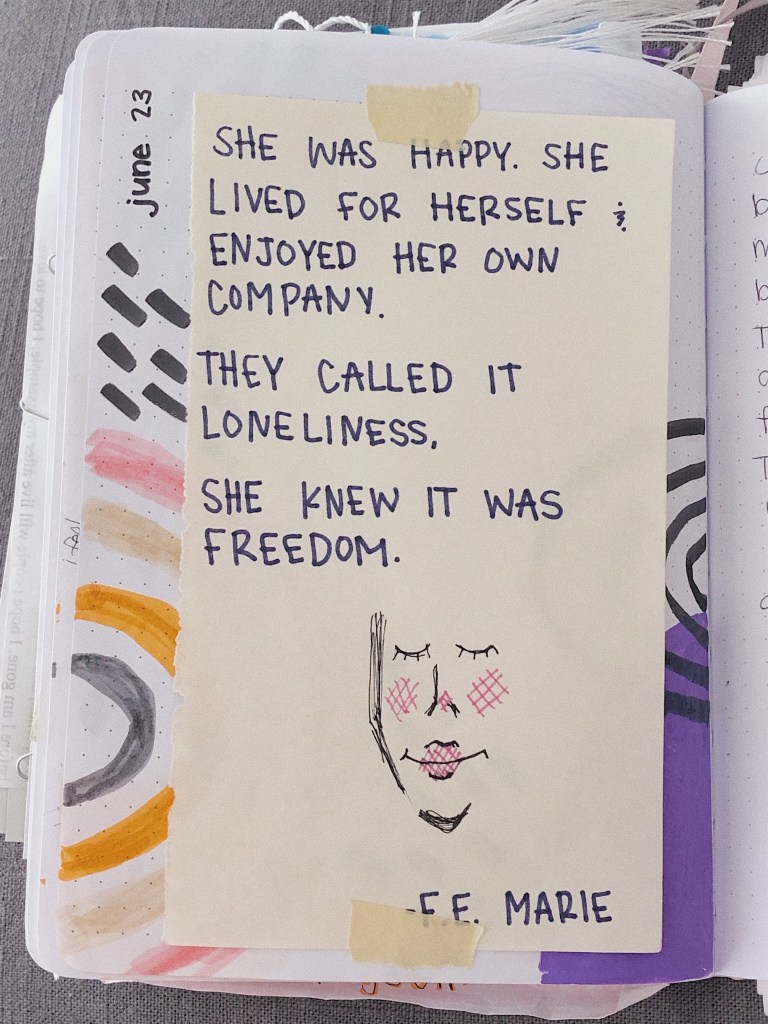 june 23
SHE WAS HAPPY. SHE
LIVED FOR HERSELF &
ENJOYED HER OWN
COMPANY.
THEY CALLED IT
LONELINESS,
SHE KNEW IT WAS
FREEDOM.
-F.E. MARIE